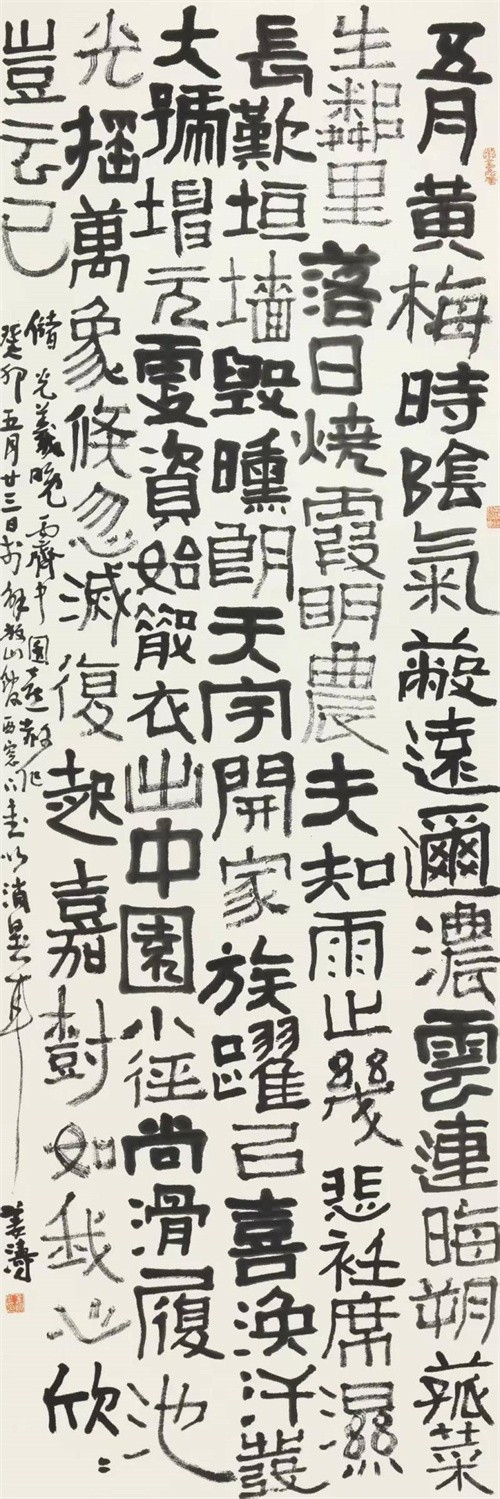 五月黄梅時陰氣蔽遠邇濃雲連晦朔菰菜
生鄰里落日燒霞明農夫知雨止幾悲衽席濕
長歎垣墻毀曛朗天宇開家族躍㠯喜渙汗發
大號坤元更資始散衣出中園小徑尚滑履池
光摇萬象倏忽滅復起嘉樹如我心欣〻
豈云已
儲光羲晚霽中園喜赦作
癸卯五月廿三日於山西窗下書以消暑耳